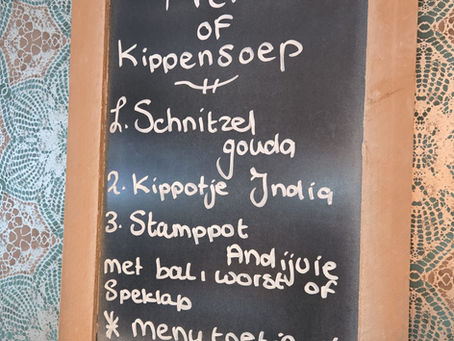 OF
Kippensoep
1. Schnitzel
gouda
2. Kippotje India
3. Stamppot
Andijvie
met bal, worst of
Speklap
* menu